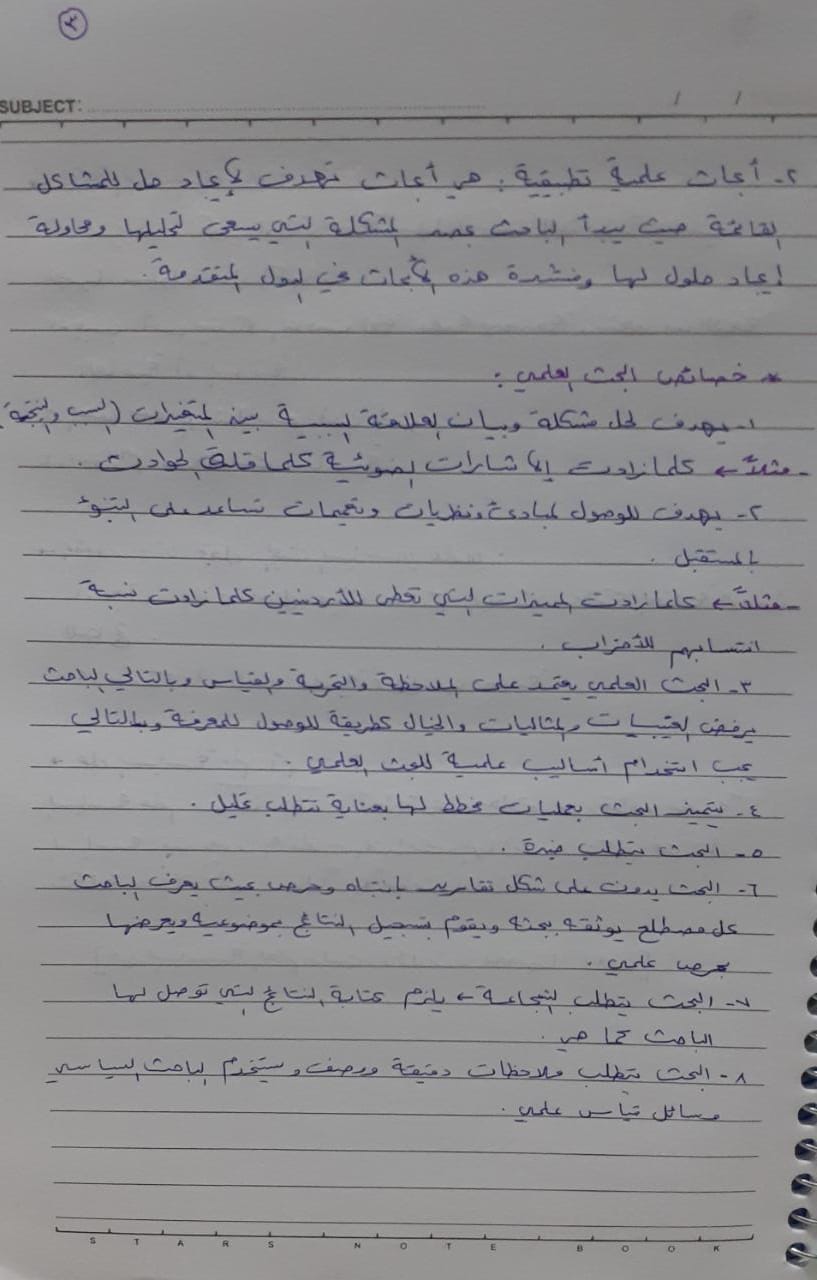 ٣
SUBJECT: / /
٢- أبحاث علمية تطبيقية: هي أبحاث تهدف لإيجاد حل للمشاكل
القائمة حيث يبدأ الباحث المشكلة التي يسعى لتحليلها ومحاولة
إيجاد حلول لها هذه الأبحاث في الدول المتقدمة.
* خصائص البحث العلمي:
١- يهدف لحل مشكلة وبيان العلاقة السببية بين المتغيرات (السبب والنتيجة).
- مثلاً ← كلما زادت الإشارات الضوئية كلما قلت الحوادث.
٢- يهدف للوصول لمبادئ ونظريات وتعميمات تساعد على التنبؤ
بالمستقبل.
- مثلاً ← كلما زادت المميزات التي تعطى للأردنيين كلما زادت نسبة
انتسابهم للأحزاب.
٣- البحث العلمي يعتمد على الملاحظة والتجربة والقياس وبالتالي الباحث
يرفض الغيبيات والمثاليات والخيال كطريقة للوصول للمعرفة وبالتالي
يجب استخدام أساليب علمية للبحث العلمي.
٤- يتميز البحث بعمليات مخطط لها بعناية تتطلب تحليل.
٥- البحث يتطلب خبرة.
٦- البحث يدون على شكل تقارير بانتباه وحرص بحيث يعرف الباحث
كل مصطلح يوثقه ببحثه ويقوم بتسجيل النتائج بموضوعية ويعرضها
بحرص علمي.
٧- البحث يتطلب الشجاعة ← يلزم كتابة النتائج التي توصل لها
الباحث كما هي.
٨- البحث يتطلب ملاحظات دقيقة ووصف ويستخدم الباحث السياسي
وسائل قياس علمي.
STARS NOTE BOOK